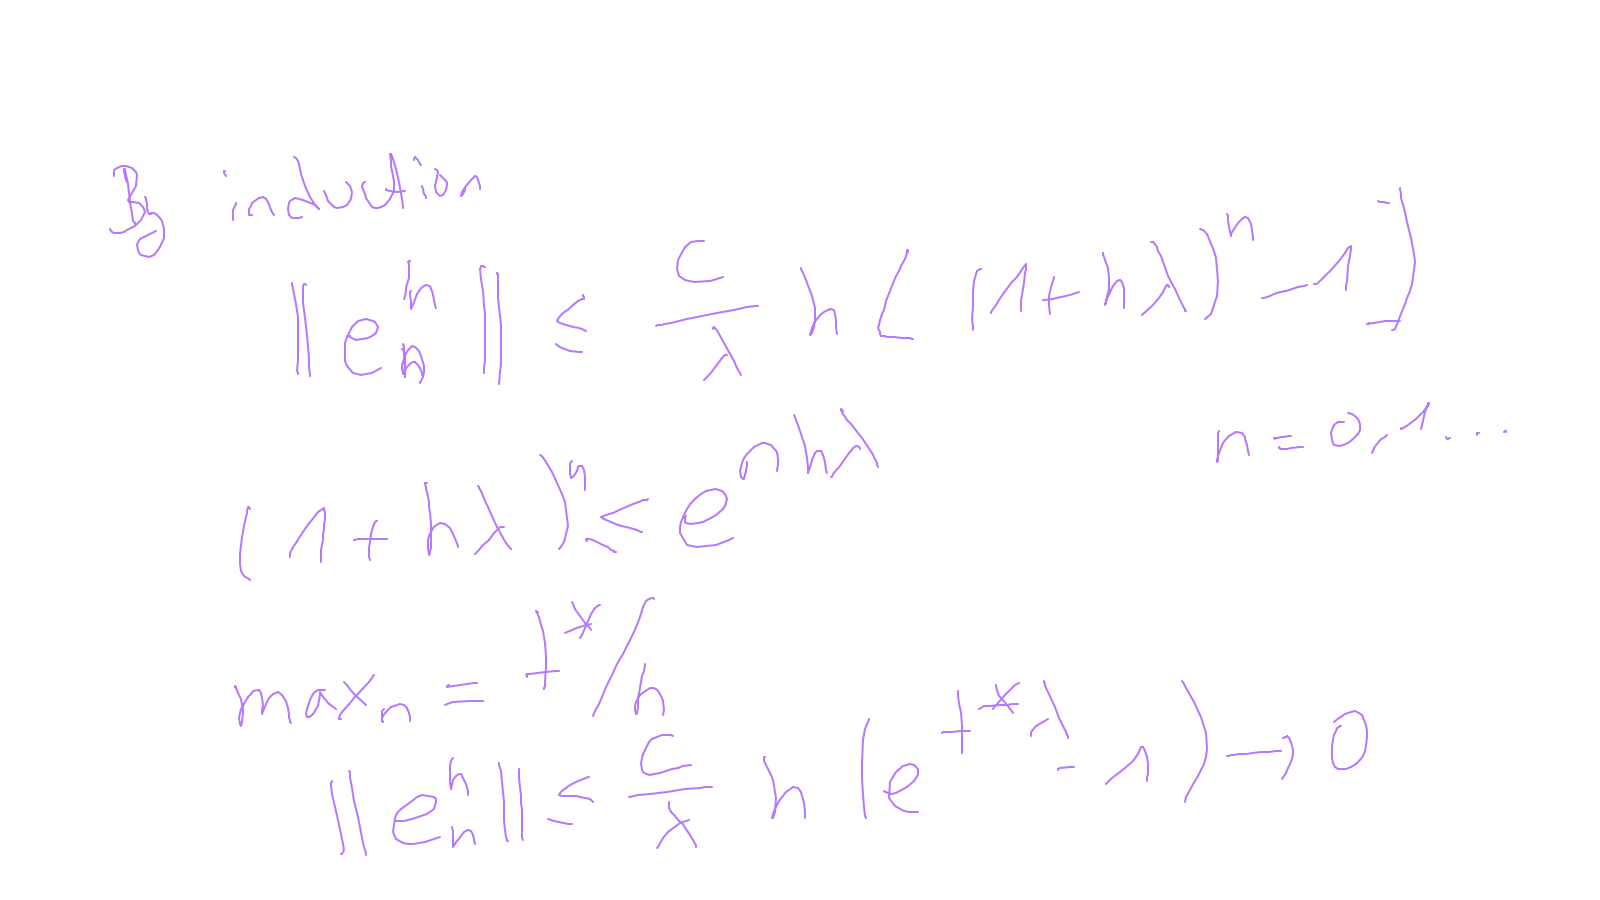 By induction
‖eₙʰ‖ ≤ c/λ h [(1+hλ)ⁿ - 1]
n = 0,1...
(1+hλ)ⁿ ≤ e^{nhλ}
maxₙ = t*/h
‖eₙʰ‖ ≤ c/λ h (e^{t*λ} - 1) → 0